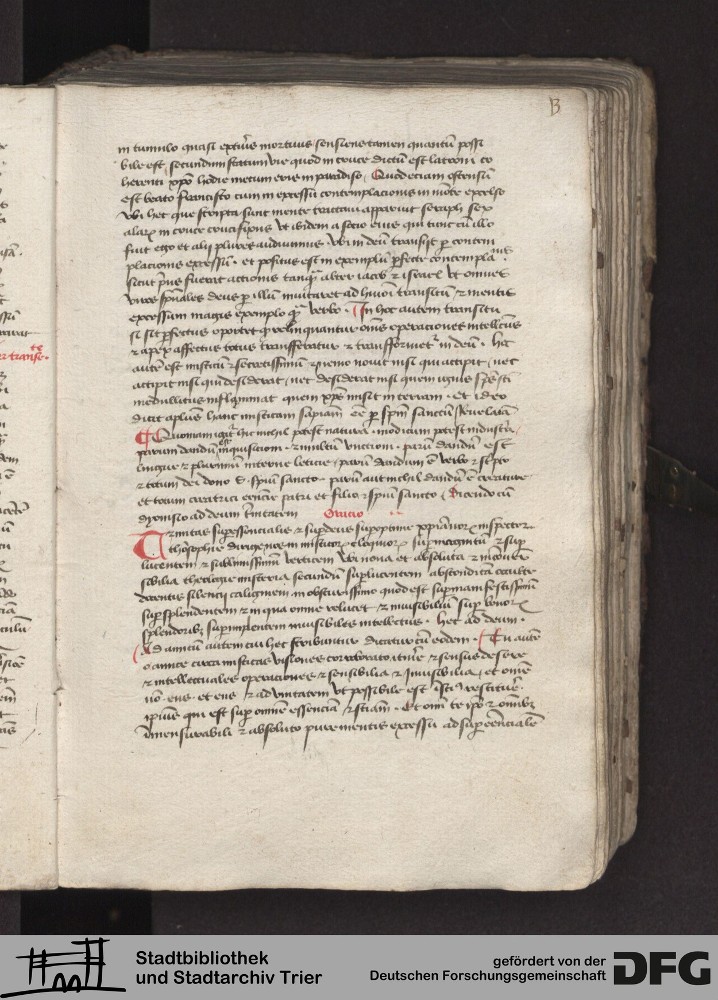 13
in tumulo quasi exterius mortuus sensiens tamen quantum possi
bile est secundum statum vie quod in cruce dictum est latroni co
herenti xpo hodie mecum eris in paradiso Quod eciam ostensum
est beato francisco cum in excessu contemplacionis in monte excelso
vbi hec que scripta sunt mente tractaui apparuit seraph sex
alarum in cruce crucifixus vt ibidem a socio eius qui tunc cum illo
fuit ego et alij plures audiuimus vbi in deum transijt per contem
placionis excessum et positus est in exemplum perfecte contemplacionis
sicut prius fuerat actionis tanquam alter iacob et israel vt omnes
viros spirituales deus per illum inuitaret ad huiusmodi transitum et mentis
excessum magis exemplo quam verbo In hoc autem transitu
si sit perfectus oportet quod relinquantur omnes operaciones intellectuales
et apex affectus totus transferatur et transformetur in deum hoc
autem est misticum et secretissimum quod nemo nouit nisi qui accipit nec
accipit nisi qui desiderat nec desiderat nisi quem ignis spiritus sancti
medullitus inflammat quem xps misit in terram Et ideo
dicit apostolus hanc misticam sapienciam esse per spiritum sanctum reuelatam
Quoniam igitur ad hoc nichil potest natura modicum potest industria
parum dandum est inquisicioni et multum vnccioni parum dandum est
lingue et plurimum interne leticie parum dandum est verbo et scripto
et totum dei dono s. spiritui sancto parum aut nichil dandum est creature
et totum creatrici essencie patri et filio et spiritui sancto Dicendo cum
dyonisio ad deum trinitatem Oracio
Trinitas superessencialis et superdeus superoptime xpianorum inspectrix
theosophie dirige nos in misticorum eloquiorum superincognitum et super
lucentem et sublimissimum verticem vbi noua et absoluta et inconuer
sibilia theologie misteria secundum superlucentem absconduntur occulte
docentis silencij caliginem in obscurissimo quod est supermanifestissimum
supersplendentem et in qua omne relucet et inuisibilium super bonorum
splendoribus superimplentem inuisibiles intellectus hec ad deum
Ad amicum autem cui hec scribuntur dicatur cum eodem Tu autem
o amice circa misticas visiones corroborato itinere et sensus desere
et intellectuales operaciones et sensibilia et inuisibilia et omne
non ens et ens et ad vnitatem vt possibile est inscius restituere
ipsius qui est super omnem essenciam et scienciam Etenim te ipso et omnibus
immensurabili et absoluto pure mentis excessu ad superessencialem
Stadtbibliothek
und Stadtarchiv Trier
gefördert von der
Deutschen Forschungsgemeinschaft DFG